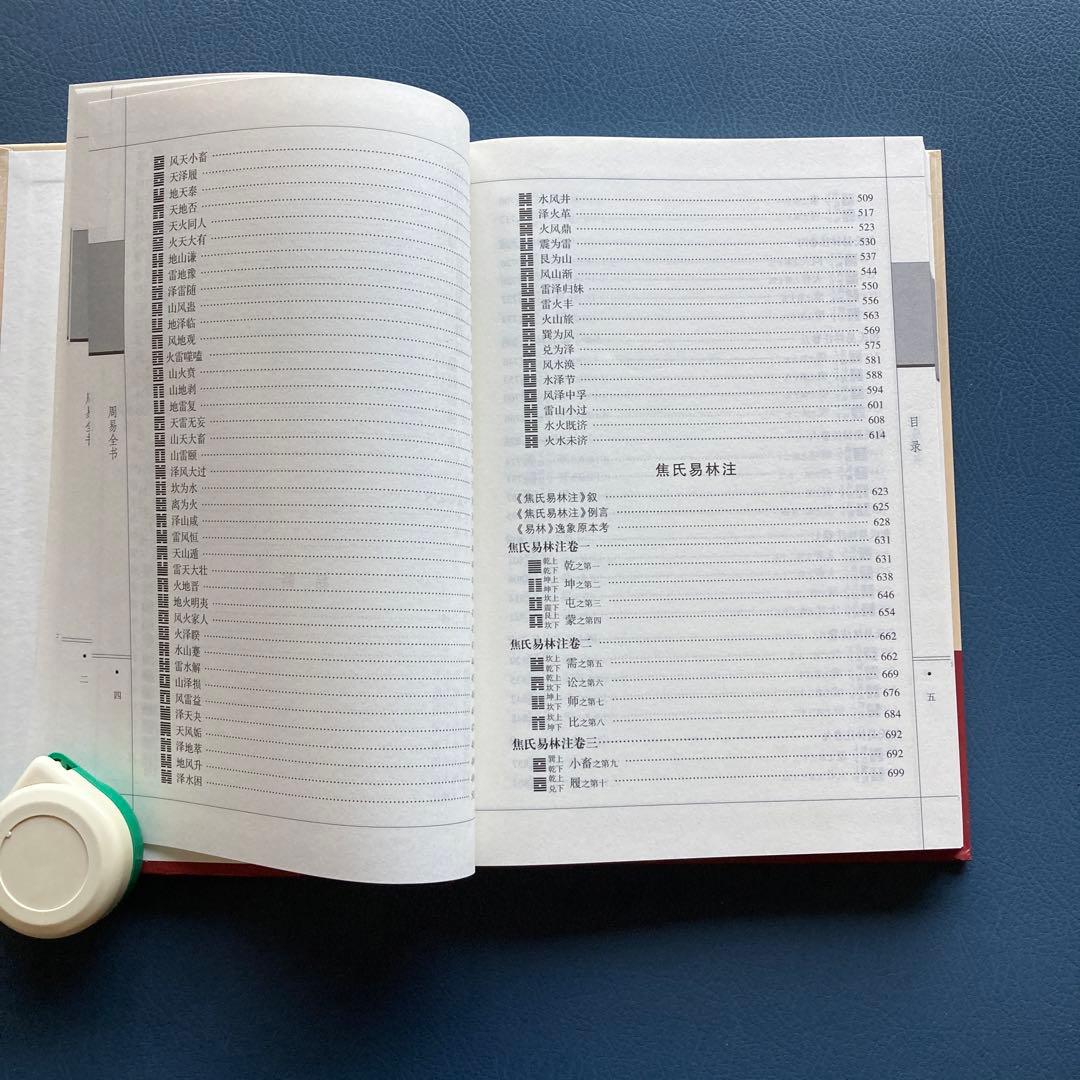 风天小畜
天泽履
地天泰
天地否
天火同人
火天大有
地山谦
雷地豫
泽雷随
山风蛊
地泽临
风地观
火雷噬嗑
山火贲
山地剥
地雷复
天雷无妄
山天大畜
山雷颐
泽风大过
坎为水
离为火
泽山咸
雷风恒
天山遁
雷天大壮
火地晋
地火明夷
风火家人
火泽睽
水山蹇
雷水解
山泽损
风雷益
泽天夬
天风姤
泽地萃
地风升
泽水困
周易全书
四
周易全书
二
水风井 509
泽火革 517
火风鼎 523
震为雷 530
艮为山 537
风山渐 544
雷泽归妹 550
雷火丰 556
火山旅 563
巽为风 569
兑为泽 575
风水涣 581
水泽节 588
风泽中孚 594
雷山小过 601
水火既济 608
火水未济 614
焦氏易林注
《焦氏易林注》叙 623
《焦氏易林注》例言 625
《易林》逸象原本考 628
焦氏易林注卷一 631
乾上
乾下 乾之第一 631
坤上
坤下 坤之第二 638
坎上
震下 屯之第三 646
艮上
坎下 蒙之第四 654
焦氏易林注卷二 662
坎上
乾下 需之第五 662
乾上
坎下 讼之第六 669
坤上
坎下 师之第七 676
坎上
坤下 比之第八 684
焦氏易林注卷三 692
巽上
乾下 小畜之第九 692
乾上
兑下 履之第十 699
目录
五